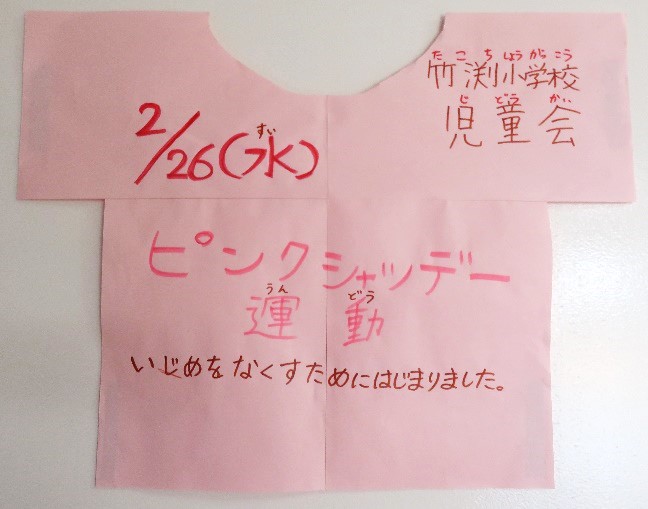 たこちしょうがっこう
竹渕小学校
じどうかい
児童会
すい
2/26(水)
ピンクシャツデー
うんどう
運動
いじめをなくすためにはじまりました。